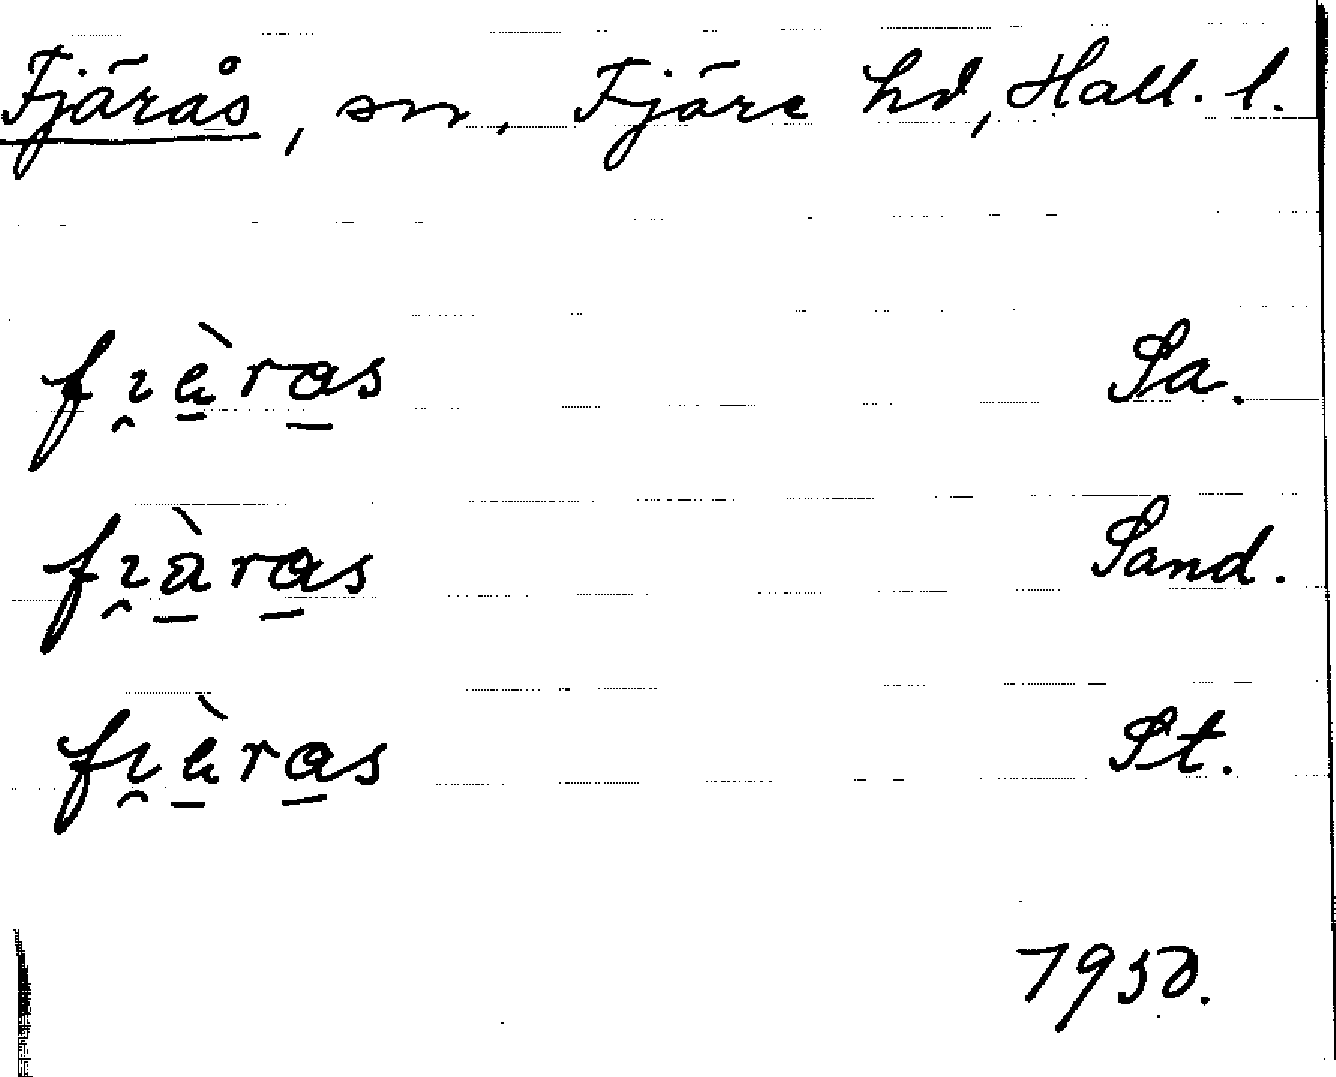 Fjärås, sn, Fjäre hd, Hall. l.
fɪ̯æ̀ras Sa.
fɪ̯àras Sand.
fɪ̯æ̀ras St.
1950.